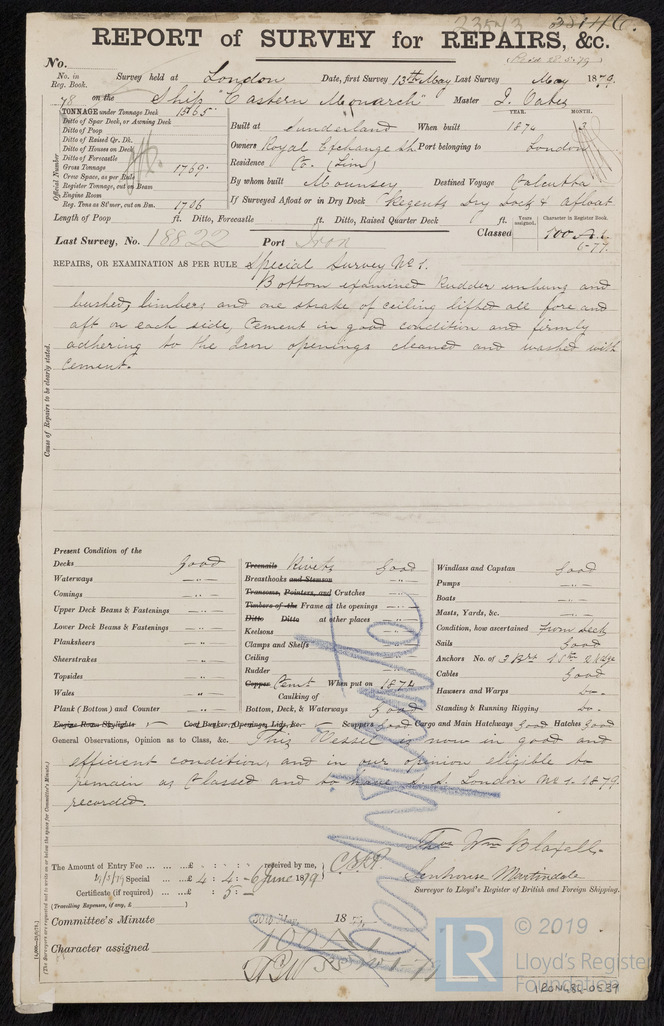 23543
REPORT of SURVEY for REPAIRS, &c.
No.
No. in Reg. Book. Survey held at London Date, first Survey 13th May Last Survey May 1879
78 on the Ship "Eastern Monarch" Master
TONNAGE under Tonnage Deck 1565
Ditto of Spar Deck, or Awning Deck
Ditto of Poop
Ditto of Raised Qr. Dk.
Ditto of Houses on Deck
Ditto of Forecastle
Gross Tonnage 1769
Crew Space, as per Rule
Register Tonnage, cut on Beam
Engine Room
Reg. Tons as St'mer, cut on Bm. 1706
Official Number
YEAR. MONTH.
Built at Sunderland When built 1874 3
Owners Royal Exchange Sh. Port belonging to London
Residence Co. (Lim)
By whom built Mounsey Destined Voyage Calcutta
If Surveyed Afloat or in Dry Dock Regents Dry Dock & Afloat
Length of Poop ft. Ditto, Forecastle ft. Ditto, Raised Quarter Deck ft.
Years assigned. Character in Register Book.
Last Survey, No. 18822 Port Iron Classed 100 A1
6-77.
REPAIRS, OR EXAMINATION AS PER RULE Special Survey No 1.
Bottom examined Rudder unhung and
bushed, limbers and one strake of ceiling lifted all fore and
aft on each side, Cement in good condition and firmly
adhering to the Iron openings cleaned and washed with
Cement.
Cause of Repairs to be clearly stated.
Present Condition of the
Decks Good
Waterways —"—
Comings —"—
Upper Deck Beams & Fastenings —"—
Lower Deck Beams & Fastenings —"—
Planksheers —"—
Sheerstrakes —"—
Topsides —"—
Wales —"—
Plank (Bottom) and Counter —"—
Treenails Rivets Good
Breasthooks and Stemson —"—
Transoms, Pointers, and Crutches —"—
Timbers of the Frame at the openings —"—
Ditto Ditto at other places —"—
Keelsons
Clamps and Shelfs
Ceiling
Rudder
Copper Cemt When put on 1874
Caulking of
Bottom, Deck, & Waterways Good
Windlass and Capstan Good
Pumps —"—
Boats —"—
Masts, Yards, &c. —"—
Condition, how ascertained From Deck
Sails Good
Anchors No. of 3 Br 1 St 2 Kedge
Cables Good
Hawsers and Warps Do
Standing & Running Rigging Do
Engine Room Skylights Coal Bunker, Openings, Lids, &c. Scuppers Good Cargo and Main Hatchways Good Hatches Good
General Observations, Opinion as to Class, &c. This Vessel is now in good and
efficient condition, and in our opinion eligible to
remain as Classed and to have S.S. London No 1. 1879
recorded.
(The Surveyors are requested not to write on or below the space for Committee's Minute.)
Thos Wm Blaxell
Senhouse Martindale
Surveyor to Lloyd's Register of British and Foreign Shipping.
The Amount of Entry Fee ... ... £ : : received by me,
Special ... £ 4 : 4 : 6 June 1879
Certificate (if required) ... £ : 5 :
(Travelling Expenses, if any, £ )
Committee's Minute 18
Character assigned 100A1
© 2019
LR
Lloyd's Register
Foundation
LON484-0539